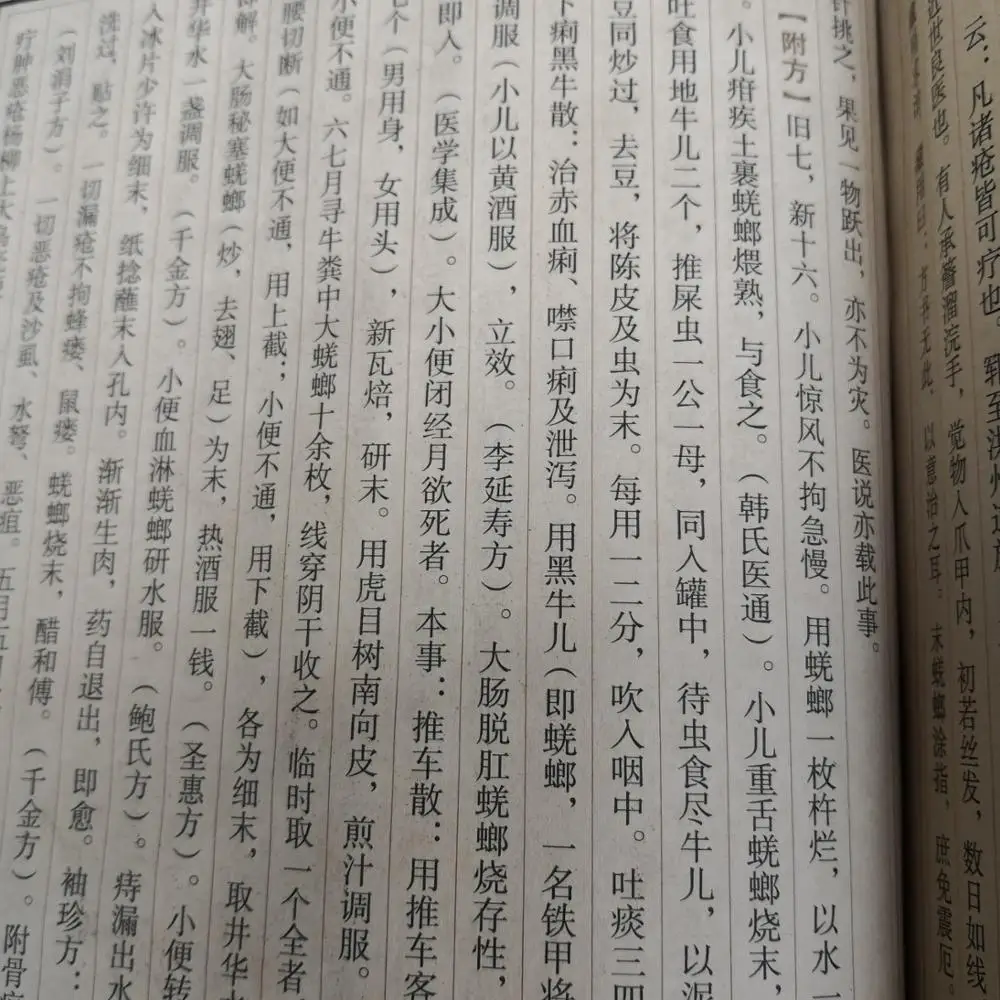 云：凡诸疮皆可疗也。
近世良医也。有人承檐溜浣手，觉物入爪甲内，初若丝发，数日如线
以意治之耳。末蜣螂涂指，庶免震厄。
针挑之，果见一物跃出，亦不为灾。医说亦载此事。
【附方】旧七，新十六。小儿惊风不拘急慢。用蜣螂一枚杵烂，以水一
。小儿疳疾土裹蜣螂煨熟，与食之。（韩氏医通）。小儿重舌蜣螂烧末，
吐食用地牛儿二个，推屎虫一公一母，同入罐中，待虫食尽牛儿，以泥
豆同炒过，去豆，将陈皮及虫为末。每用一二分，吹入咽中。吐痰三四
下痢黑牛散：治赤血痢、噤口痢及泄泻。用黑牛儿（即蜣螂，一名铁甲将
调服（小儿以黄酒服），立效。（李延寿方）。大肠脱肛蜣螂烧存性，
即入。（医学集成）。大小便闭经月欲死者。本事：推车散：用推车客
七个（男用身，女用头），新瓦焙，研末。用虎目树南向皮，煎汁调服。
小便不通。六七月寻牛粪中大蜣螂十余枚，线穿阴干收之。临时取一个全者，
腰切断（如大便不通，用上截；小便不通，用下截），各为细末，取井华水
即解。大肠秘塞蜣螂（炒，去翅、足）为末，热酒服一钱。（圣惠方）。小便转
井华水一盏调服。（千金方）。小便血淋蜣螂研水服。（鲍氏方）。痔漏出水
入冰片少许为细末，纸捻蘸末入孔内。渐渐生肉，药自退出，即愈。袖珍方：
洗过，贴之。一切漏疮不拘蜂瘘、鼠瘘。蜣螂烧末，醋和傅。（千金方）。附骨疽
（刘涓子方）。一切恶疮及沙虱、水弩、恶疽。五月五日
疔肿恶疮杨柳上大